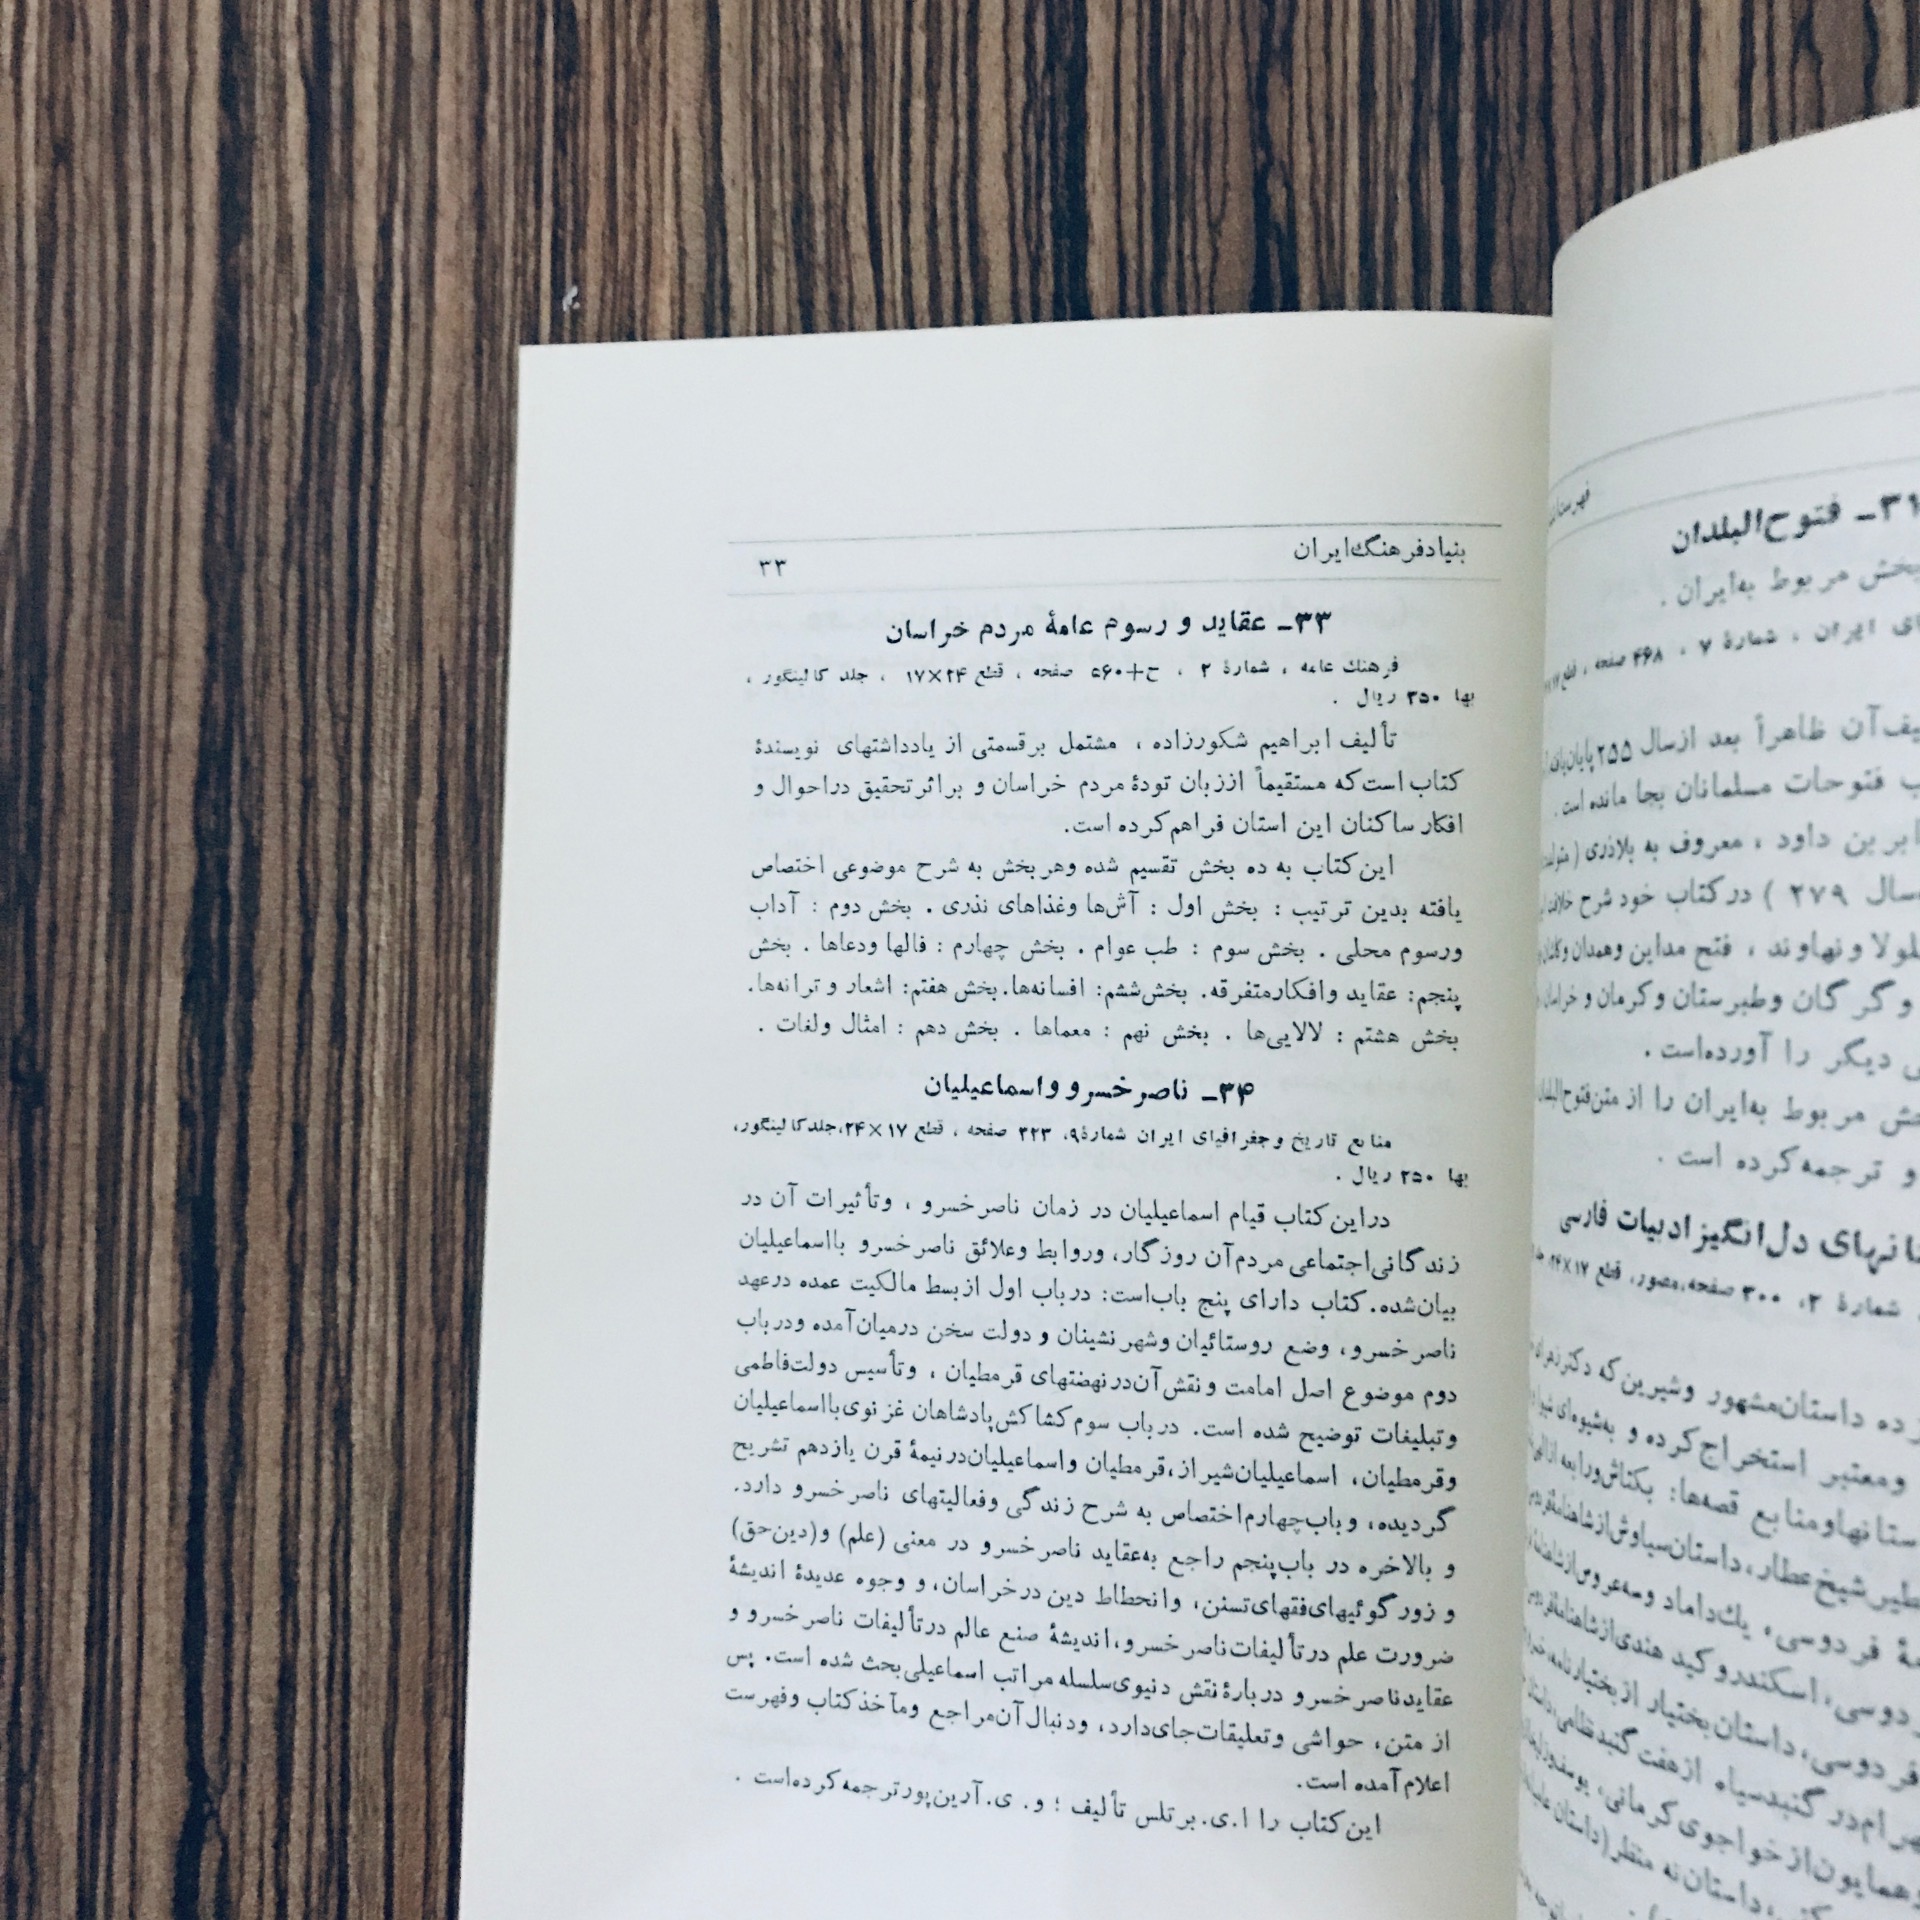 بنیاد فرهنگ ایران
۳۳
۳۳ـ عقاید و رسوم عامهٔ مردم خراسان
فرهنگ عامه ، شمارهٔ ۲ ، ح+۵۶۰ صفحه ، قطع ۲۴×۱۷ ، جلد کالینگور ،
بها ۳۵۰ ریال .
تألیف ابراهیم شکورزاده ، مشتمل برقسمتی از یادداشتهای نویسندهٔ
کتاب است که مستقیماً از زبان تودهٔ مردم خراسان و براثر تحقیق دراحوال و
افکار ساکنان این استان فراهم کرده است.
این کتاب به ده بخش تقسیم شده وهر بخش به شرح موضوعی اختصاص
یافته بدین ترتیب : بخش اول : آش‌ها وغذاهای نذری . بخش دوم : آداب
ورسوم محلی . بخش سوم : طب عوام . بخش چهارم : فالها ودعاها . بخش
پنجم: عقاید وافکارمتفرقه. بخش‌ششم: افسانه‌ها. بخش هفتم: اشعار و ترانه‌ها.
بخش هشتم : لالایی‌ها . بخش نهم : معماها . بخش دهم : امثال ولغات .
۳۴ـ ناصر خسرو و اسماعیلیان
منابع تاریخ وجغرافیای ایران شمارهٔ ۹، ۳۲۳ صفحه ، قطع ۱۷×۲۴، جلدکالینگور،
بها ۲۵۰ ریال .
دراین کتاب قیام اسماعیلیان در زمان ناصرخسرو ، وتأثیرات آن در
زندگانی‌اجتماعی مردم آن روزگار، وروابط وعلائق ناصرخسرو بااسماعیلیان
بیان‌شده. کتاب دارای پنج باب‌است: درباب اول ازبسط مالکیت عمده درعهد
ناصرخسرو، وضع روستائیان وشهرنشینان و دولت سخن درمیان‌آمده ودرباب
دوم موضوع اصل امامت ونقش‌آن‌درنهضتهای قرمطیان ، وتأسیس دولت‌فاطمی
وتبلیغات توضیح شده است. درباب سوم کشاکش‌پادشاهان غزنوی‌بااسماعیلیان
وقرمطیان، اسماعیلیان‌شیراز، قرمطیان واسماعیلیان‌درنیمهٔ قرن یازدهم تشریح
گردیده، وباب‌چهارم‌اختصاص به شرح زندگی وفعالیتهای ناصرخسرو دارد.
و بالاخره در باب‌پنجم راجع به‌عقاید ناصرخسرو در معنی (علم) و(دین‌حق)
و زورگوئیهای‌فقهای‌تسنن، وانحطاط دین درخراسان، و وجوه عدیدهٔ اندیشهٔ
ضرورت علم درتألیفات‌ناصرخسرو، اندیشهٔ صنع عالم درتألیفات ناصرخسرو و
عقایدناصرخسرو دربارهٔ نقش دنیوی‌سلسله مراتب اسماعیلی‌بحث شده است. پس
از متن، حواشی وتعلیقات‌جای‌دارد، ودنبال‌آن‌مراجع ومآخذکتاب وفهرست
اعلام آمده است.
این‌کتاب را ا.ی. برتلس تألیف ؛ و. ی. آرین‌پورترجمه‌کرده‌است .
۳۱ـ فتوح‌البلدان
بخش مربوط به‌ایران .
ایران ، شمارهٔ ۷ ، ۴۶۸ صفحه ، قطع
آن ظاهراً بعد ازسال ۲۵۵
فتوحات مسلمانان بجا مانده است .
داود ، معروف به بلاذری
سال ۲۷۹ ) درکتاب خود شرح
ونهاوند ، فتح مداین وهمدان
و گرگان وطبرستان وکرمان و
دیگر را آورده‌است .
مربوط به‌ایران را از متن فتوح‌البلدان
و ترجمه کرده است .
دل‌انگیز ادبیات فارسی
شمارهٔ ۲، ۳۰۰ صفحه، مصور، قطع ۱۷×۲۴،
داستان‌مشهور وشیرین‌که دکتر
ومعتبر استخراج‌کرده و به‌شیوه‌ای
ومنابع قصه‌ها: بکتاش‌ورابعه
شیخ‌عطار، داستان‌سیاوش‌ازشاهنامه
فردوسی، یك‌داماد وسه‌عروس‌از
اسکندروکید هندی‌ازشاهنامه
فردوسی، داستان‌بختیار ازبختیارنامه،
درگنبدسیاه ازهفت گنبدنظامی،
همایون‌ازخواجوی‌کرمانی،